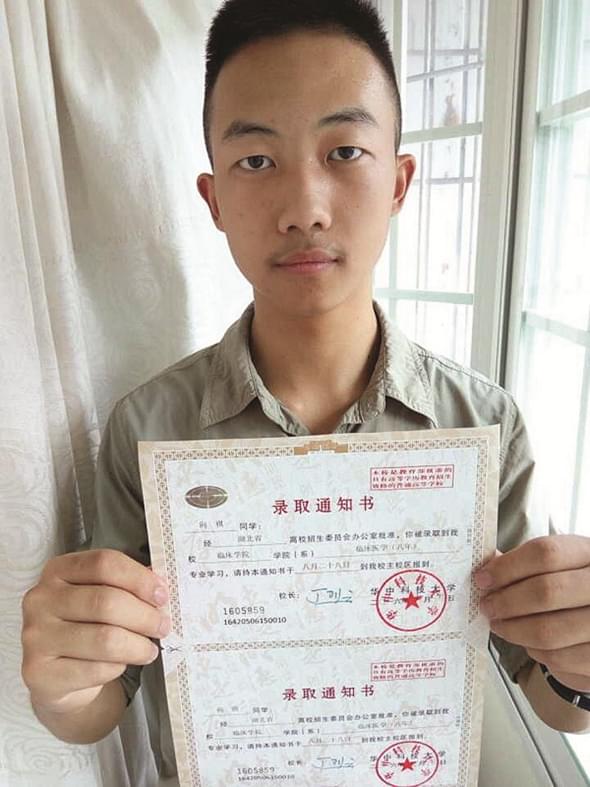 本校是教育部批准的
具有高等学历教育招生
资格的普通高等学校
录取通知书
同学:
经 湖北省 高校招生委员会办公室批准,你被录取到我
校 临床学院 学院(系) 临床医学(八年)
专业学习,请持本通知书于 八月二十八日 到我校主校区报到。
校长: 华中科技大学
1605859
16420506150010
本校是教育部批准的
具有高等学历教育招生
资格的普通高等学校
录取通知书
同学:
经 湖北省 高校招生委员会办公室批准,你被录取到我
校 临床学院 学院(系) 临床医学(八年)
专业学习,请持本通知书于 八月二十八日 到我校主校区报到。
校长: 华中科技大学
1605859
16420506150010